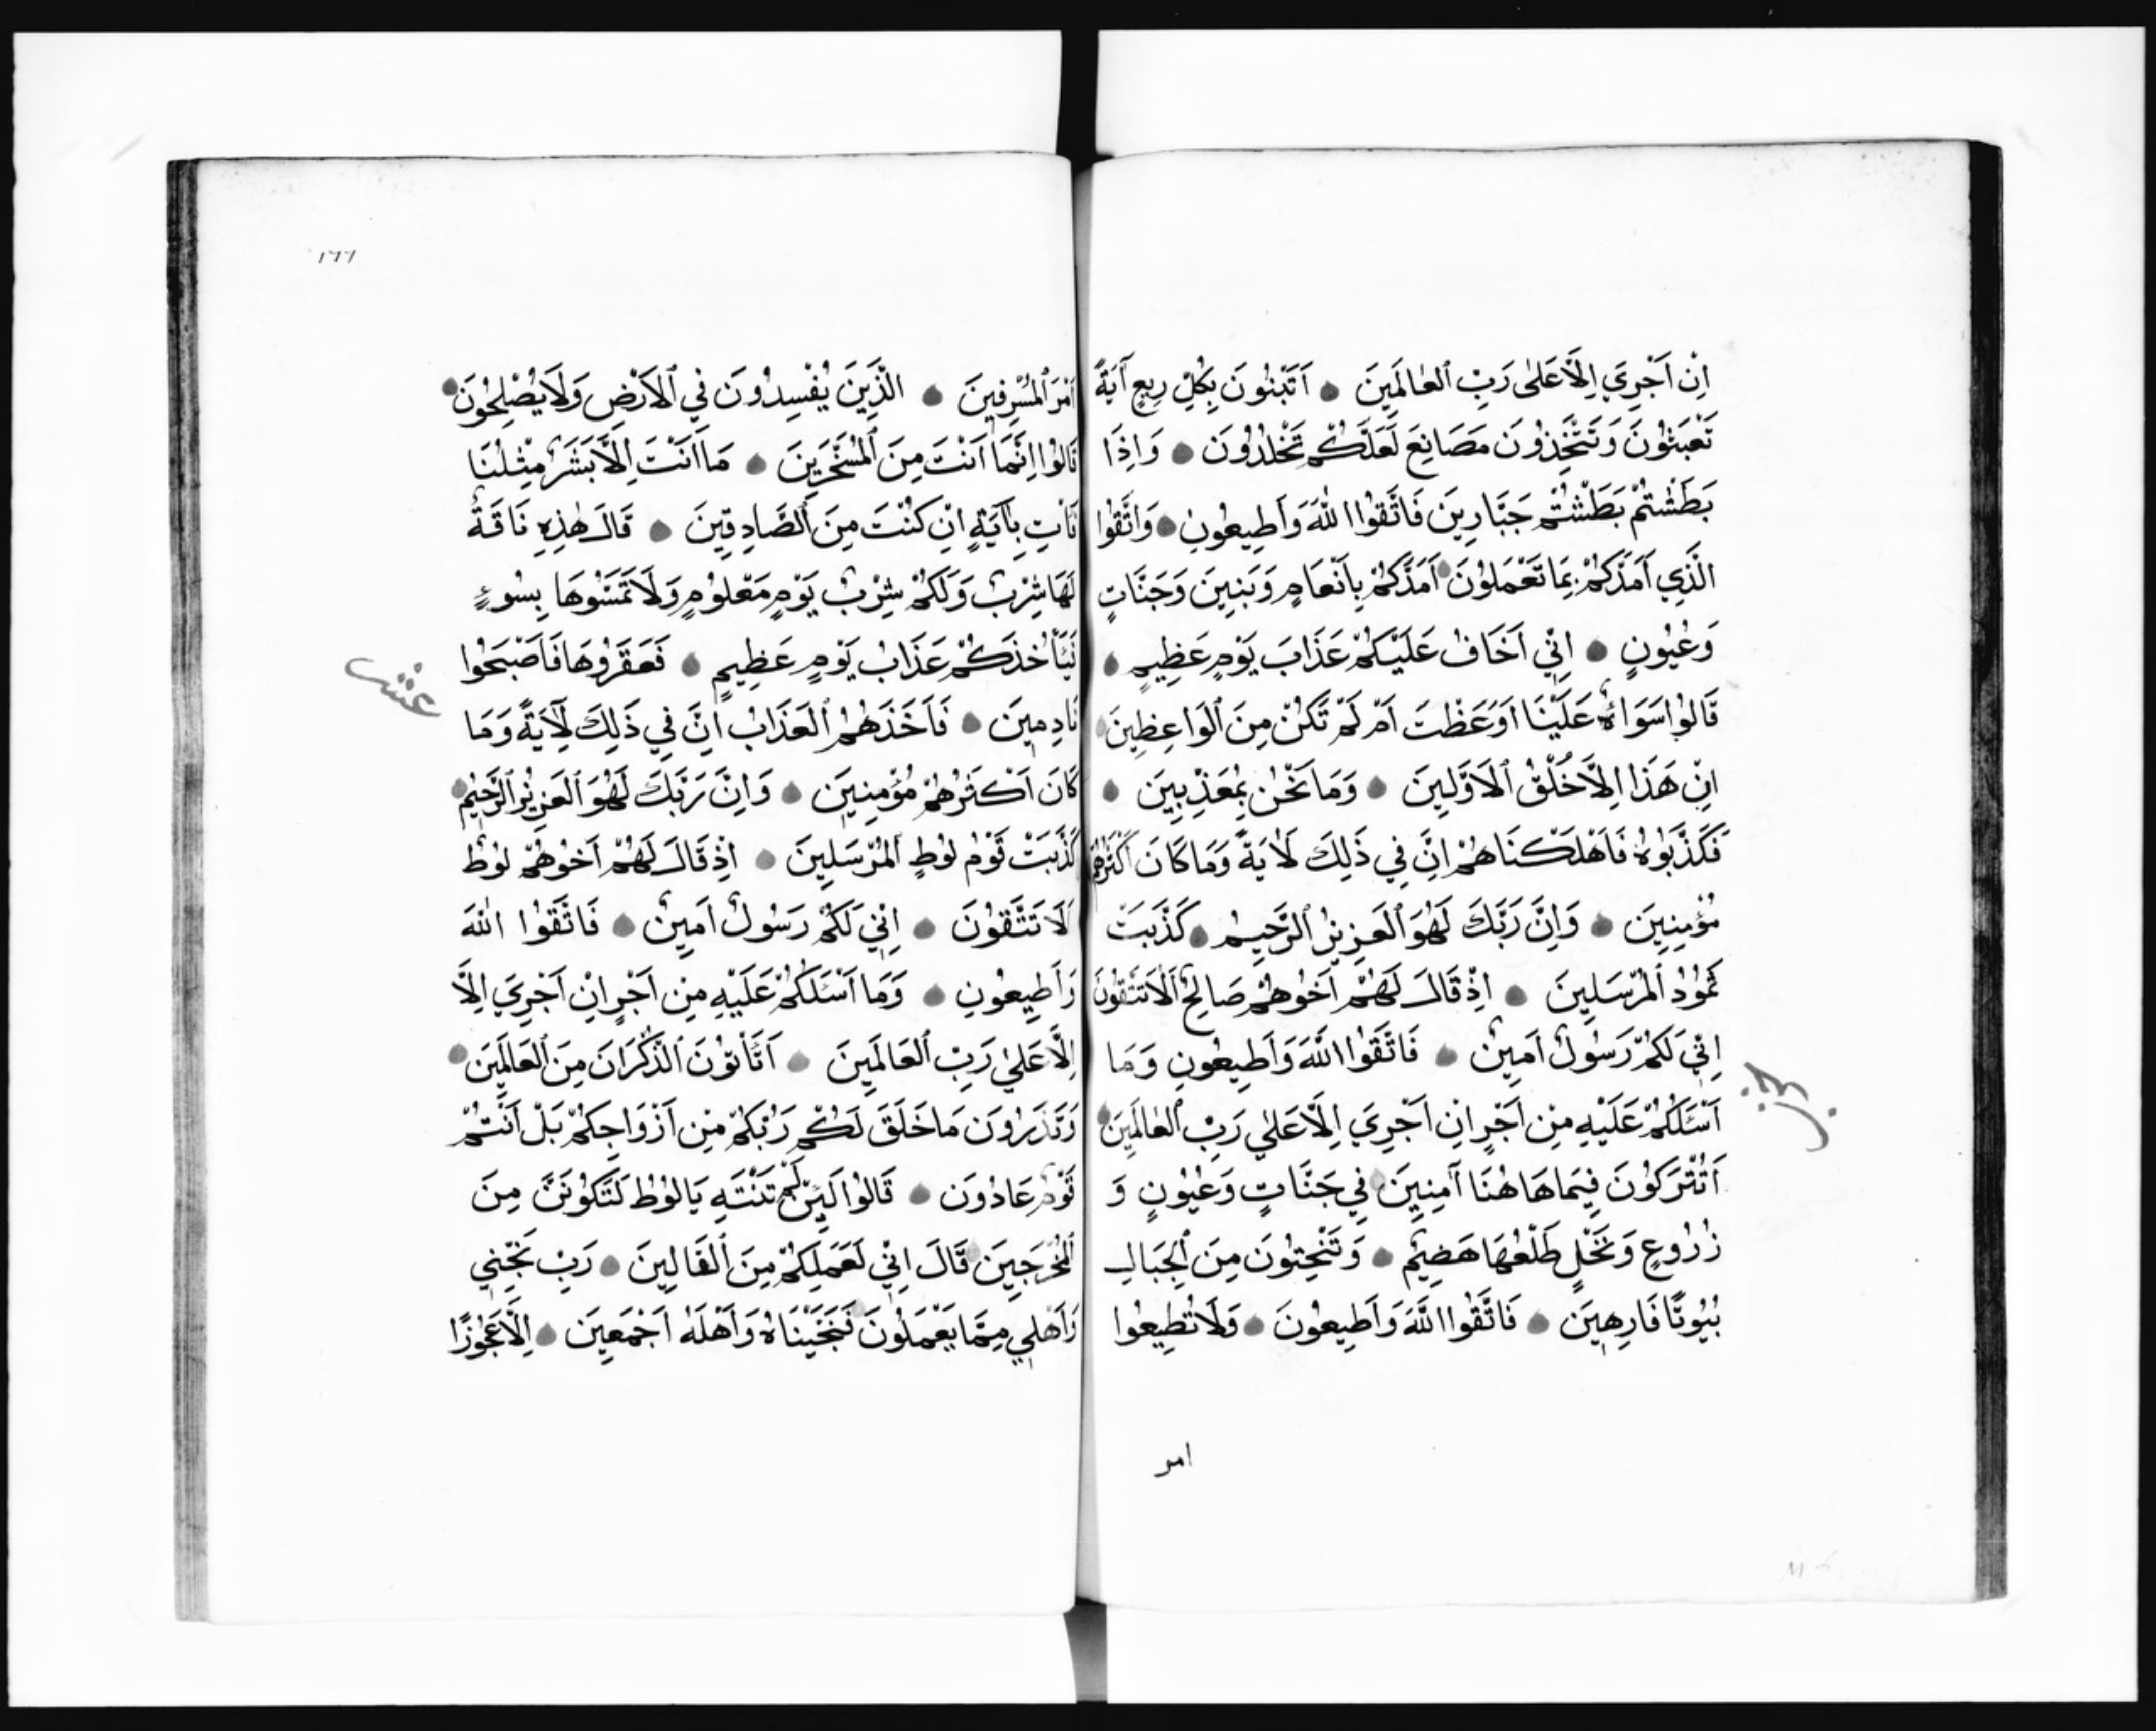 اِنْ اَجْرِيَ اِلَّا عَلٰى رَبِّ الْعٰالَمِينَ اَتَبْنُونَ بِكُلِّ رِيعٍ آيَةً
تَعْبَثُونَ وَتَتَّخِذُونَ مَصَانِعَ لَعَلَّكُمْ تَخْلُدُونَ وَاِذَا
بَطَشْتُمْ بَطَشْتُمْ جَبَّارِينَ فَاتَّقُوا اللّٰهَ وَاَطِيعُونِ وَاتَّقُوا
الَّذِي اَمَدَّكُمْ بِمَا تَعْمَلُونَ اَمَدَّكُمْ بِاَنْعَامٍ وَبَنِينَ وَجَنَّاتٍ
وَعُيُونٍ اِنِّي اَخَافُ عَلَيْكُمْ عَذَابَ يَوْمٍ عَظِيمٍ
قَالُوا سَوَاءٌ عَلَيْنَا اَوَعَظْتَ اَمْ لَمْ تَكُنْ مِنَ الْوَاعِظِينَ
اِنْ هَذَا اِلَّا خُلُقُ الْاَوَّلِينَ وَمَا نَحْنُ بِمُعَذَّبِينَ
فَكَذَّبُوهُ فَاَهْلَكْنَاهُمْ اِنَّ فِي ذَلِكَ لَاٰيَةً وَمَا كَانَ اَكْثَرُهُمْ
مُؤْمِنِينَ وَاِنَّ رَبَّكَ لَهُوَ الْعَزِيزُ الرَّحِيمُ كَذَّبَتْ
ثَمُودُ الْمُرْسَلِينَ اِذْ قَالَ لَهُمْ اَخُوهُمْ صَالِحٌ اَلَا تَتَّقُونَ
اِنِّي لَكُمْ رَسُولٌ اَمِينٌ فَاتَّقُوا اللّٰهَ وَاَطِيعُونِ وَمَا
اَسْئَلُكُمْ عَلَيْهِ مِنْ اَجْرٍ اِنْ اَجْرِيَ اِلَّا عَلٰى رَبِّ الْعٰالَمِينَ
اَتُتْرَكُونَ فِيمَا هَاهُنَا آمِنِينَ فِي جَنَّاتٍ وَعُيُونٍ وَ
زُرُوعٍ وَنَخْلٍ طَلْعُهَا هَضِيمٌ وَتَنْحِتُونَ مِنَ الْجِبَالِ
بُيُوتًا فَارِهِينَ فَاتَّقُوا اللّٰهَ وَاَطِيعُونَ وَلَا تُطِيعُوا
امر
١٦٦
اَمْرَ الْمُسْرِفِينَ الَّذِينَ يُفْسِدُونَ فِي الْاَرْضِ وَلَا يُصْلِحُونَ
قَالُوا اِنَّمَا اَنْتَ مِنَ الْمُسَحَّرِينَ مَا اَنْتَ اِلَّا بَشَرٌ مِثْلُنَا
فَاْتِ بِآيَةٍ اِنْ كُنْتَ مِنَ الصَّادِقِينَ قَالَ هٰذِهِ نَاقَةٌ
لَهَا شِرْبٌ وَلَكُمْ شِرْبُ يَوْمٍ مَعْلُومٍ وَلَا تَمَسُّوهَا بِسُوءٍ
فَيَأْخُذَكُمْ عَذَابُ يَوْمٍ عَظِيمٍ فَعَقَرُوهَا فَاَصْبَحُوا
عشر
نَادِمِينَ فَاَخَذَهُمُ الْعَذَابُ اِنَّ فِي ذَلِكَ لَآيَةً وَمَا
كَانَ اَكْثَرُهُمْ مُؤْمِنِينَ وَاِنَّ رَبَّكَ لَهُوَ الْعَزِيزُ الرَّحِيمُ
كَذَّبَتْ قَوْمُ لُوطٍ الْمُرْسَلِينَ اِذْ قَالَ لَهُمْ اَخُوهُمْ لُوطٌ
اَلَا تَتَّقُونَ اِنِّي لَكُمْ رَسُولٌ اَمِينٌ فَاتَّقُوا اللّٰهَ
وَاَطِيعُونِ وَمَا اَسْئَلُكُمْ عَلَيْهِ مِنْ اَجْرٍ اِنْ اَجْرِيَ اِلَّا
اِلَّا عَلٰى رَبِّ الْعَالَمِينَ اَتَأْتُونَ الذُّكْرَانَ مِنَ الْعَالَمِينَ
وَتَذَرُونَ مَا خَلَقَ لَكُمْ رَبُّكُمْ مِنْ اَزْوَاجِكُمْ بَلْ اَنْتُمْ
قَوْمٌ عَادُونَ قَالُوا لَئِنْ لَمْ تَنْتَهِ يَا لُوطُ لَتَكُونَنَّ مِنَ
الْمُخْرَجِينَ قَالَ اِنِّي لَعَمَلِكُمْ مِنَ الْقَالِينَ رَبِّ نَجِّنِي
وَاَهْلِي مِمَّا يَعْمَلُونَ فَنَجَّيْنَاهُ وَاَهْلَهُ اَجْمَعِينَ اِلَّا عَجُوزًا